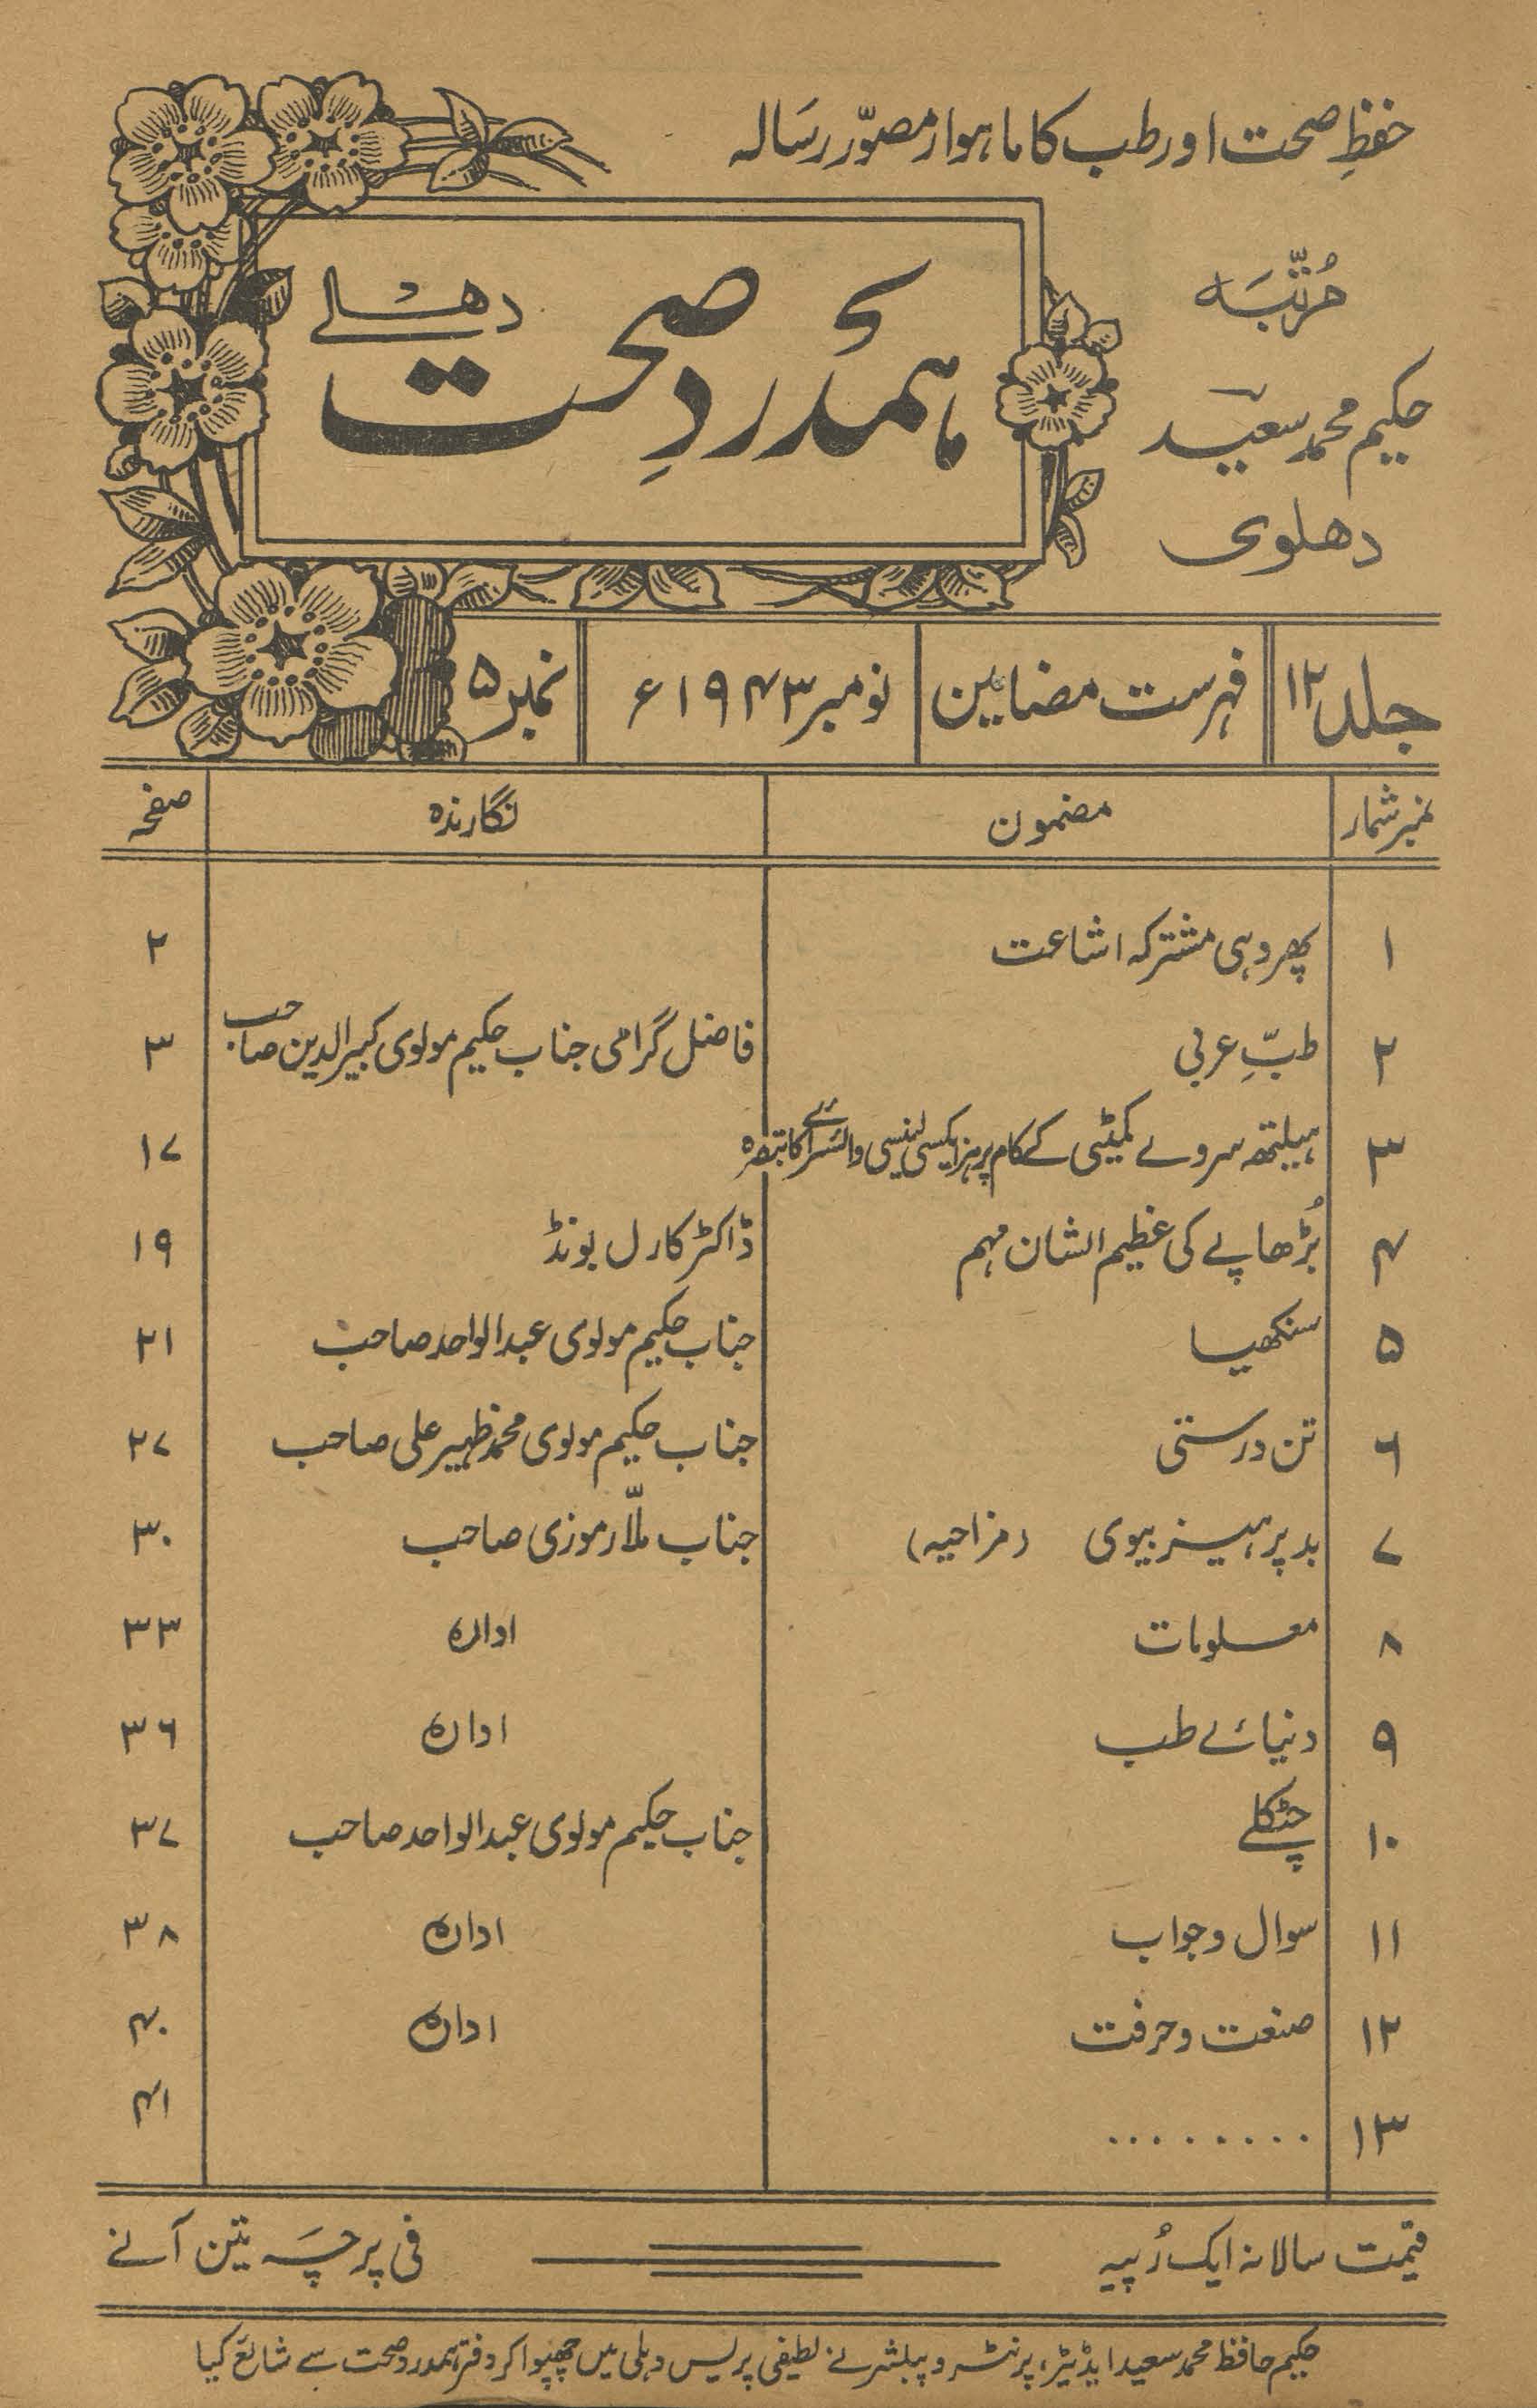 حفظِ صحت اور طب کا ماہوار مصوّر رسَالہ
مُرتّبَہ
حکیم محمد سعید
دھلوی
ہمدردِ صحت
دھلے
جلد ۱۲ فہرست مضامین نومبر ۱۹۴۳ء نمبر ۵
نمبر شمار مضمون نگارندہ صفحہ
۱ پھر وہی مشترکہ اشاعت ۲
۲ طبِّ عربی فاضل گرامی جناب حکیم مولوی کبیر الدین صاحب ۳
۳ ہیلتھ سروے کمیٹی کے کام پر ہز ایکسی لینسی وائسرائے کا تبصرہ ۱۷
۴ بُڑھاپے کی عظیم الشان مہم ڈاکٹر کارل بونڈ ۱۹
۵ سنکھیا جناب حکیم مولوی عبدالواحد صاحب ۲۱
۶ تن درستی جناب حکیم مولوی محمد ظہیر علی صاحب ۲۷
۷ بد پرہیز بیوی (مزاحیہ) جناب ملّا رموزی صاحب ۳۰
۸ معلومات ادارہ ۳۳
۹ دنیائے طب ادارہ ۳۶
۱۰ چٹکلے جناب حکیم مولوی عبدالواحد صاحب ۳۷
۱۱ سوال و جواب ادارہ ۳۸
۱۲ صنعت و حرفت ادارہ ۴۰
۱۳ ......... ۴۱
قیمت سالانہ ایک رُپیہ فی پرچَہ تین آنے
حکیم حافظ محمد سعید ایڈیٹر، پرنٹر و پبلشر نے لطیفی پریس دہلی میں چھپوا کر دفتر ہمدرد صحت سے شائع کیا